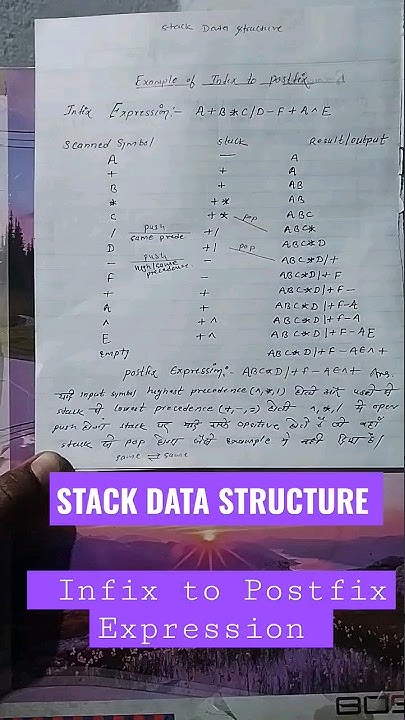 Stack Data Structure
Example of Infix to postfix
Infix Expression:- A+B*C/D-F+A^E
Scanned Symbol stack Result/output
A — A
+ + A
B + AB
* +* AB
C +* pop ABC
/ push same prede +/ ABC*
D +/ pop ABC*D
- push high/same precedence - ABC*D/+
F - ABC*D/+F
+ + ABC*D/+F-
A + ABC*D/+F-A
^ +^ ABC*D/+F-A
E +^ ABC*D/+F-AE
empty ABC*D/+F-AE^+
postfix Expression:- ABC*D/+F-AE^+ Ans.
यदि input symbol highest precedence (^,*,/) होता और पहले से
stack में lowest precedence (+,-,=) होती ^,*,/ में oper
push होगा stack पर यदि
stack से pop होगा जैसे example में
same ⇌ same
STACK DATA STRUCTURE
Infix to Postfix
Expression
BOS